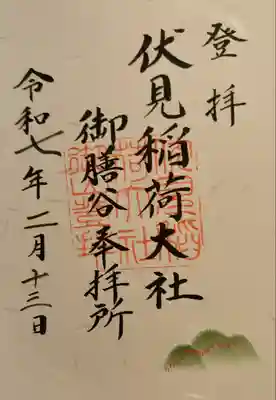 登拝
伏見稲荷大社
御膳谷奉拝所
令和七年二月十三日